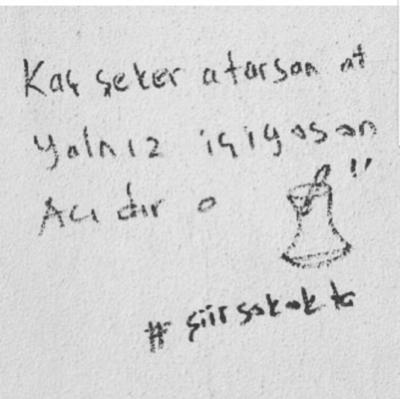 Kaç şeker atarsan at
yalnız içiyosan
Acıdır o "
#şiirsokakta